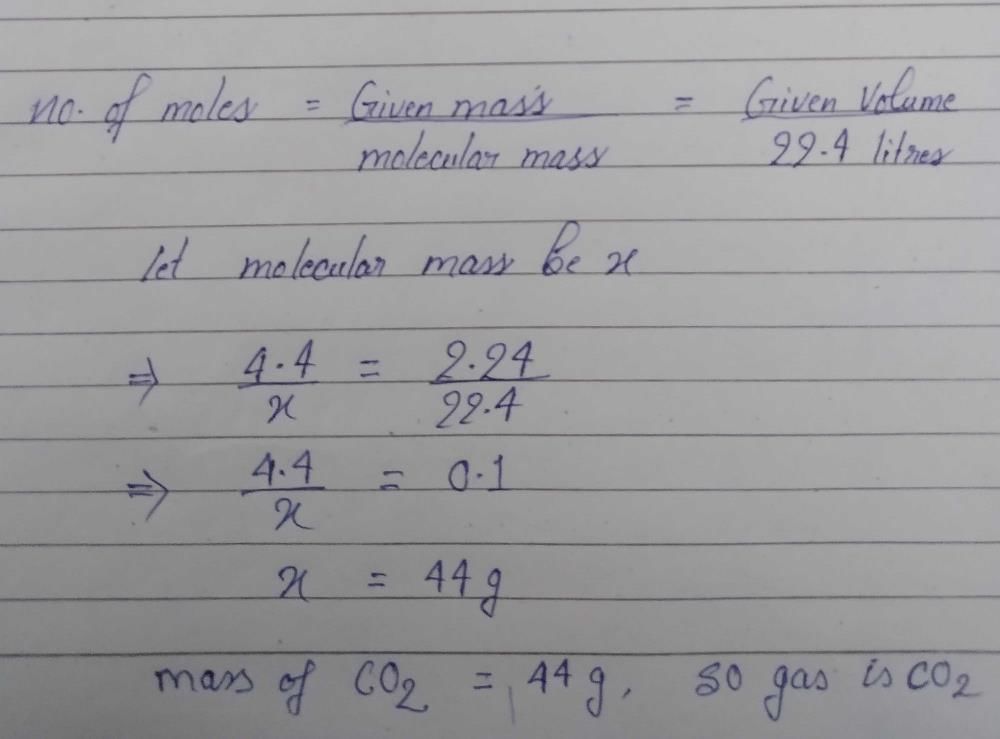 no. of moles = Given mass / molecular mass = Given Volume / 22.4 litres
let molecular mass be x
⇒ 4.4 / x = 2.24 / 22.4
⇒ 4.4 / x = 0.1
x = 44 g
mass of CO2 = 44 g, so gas is CO2